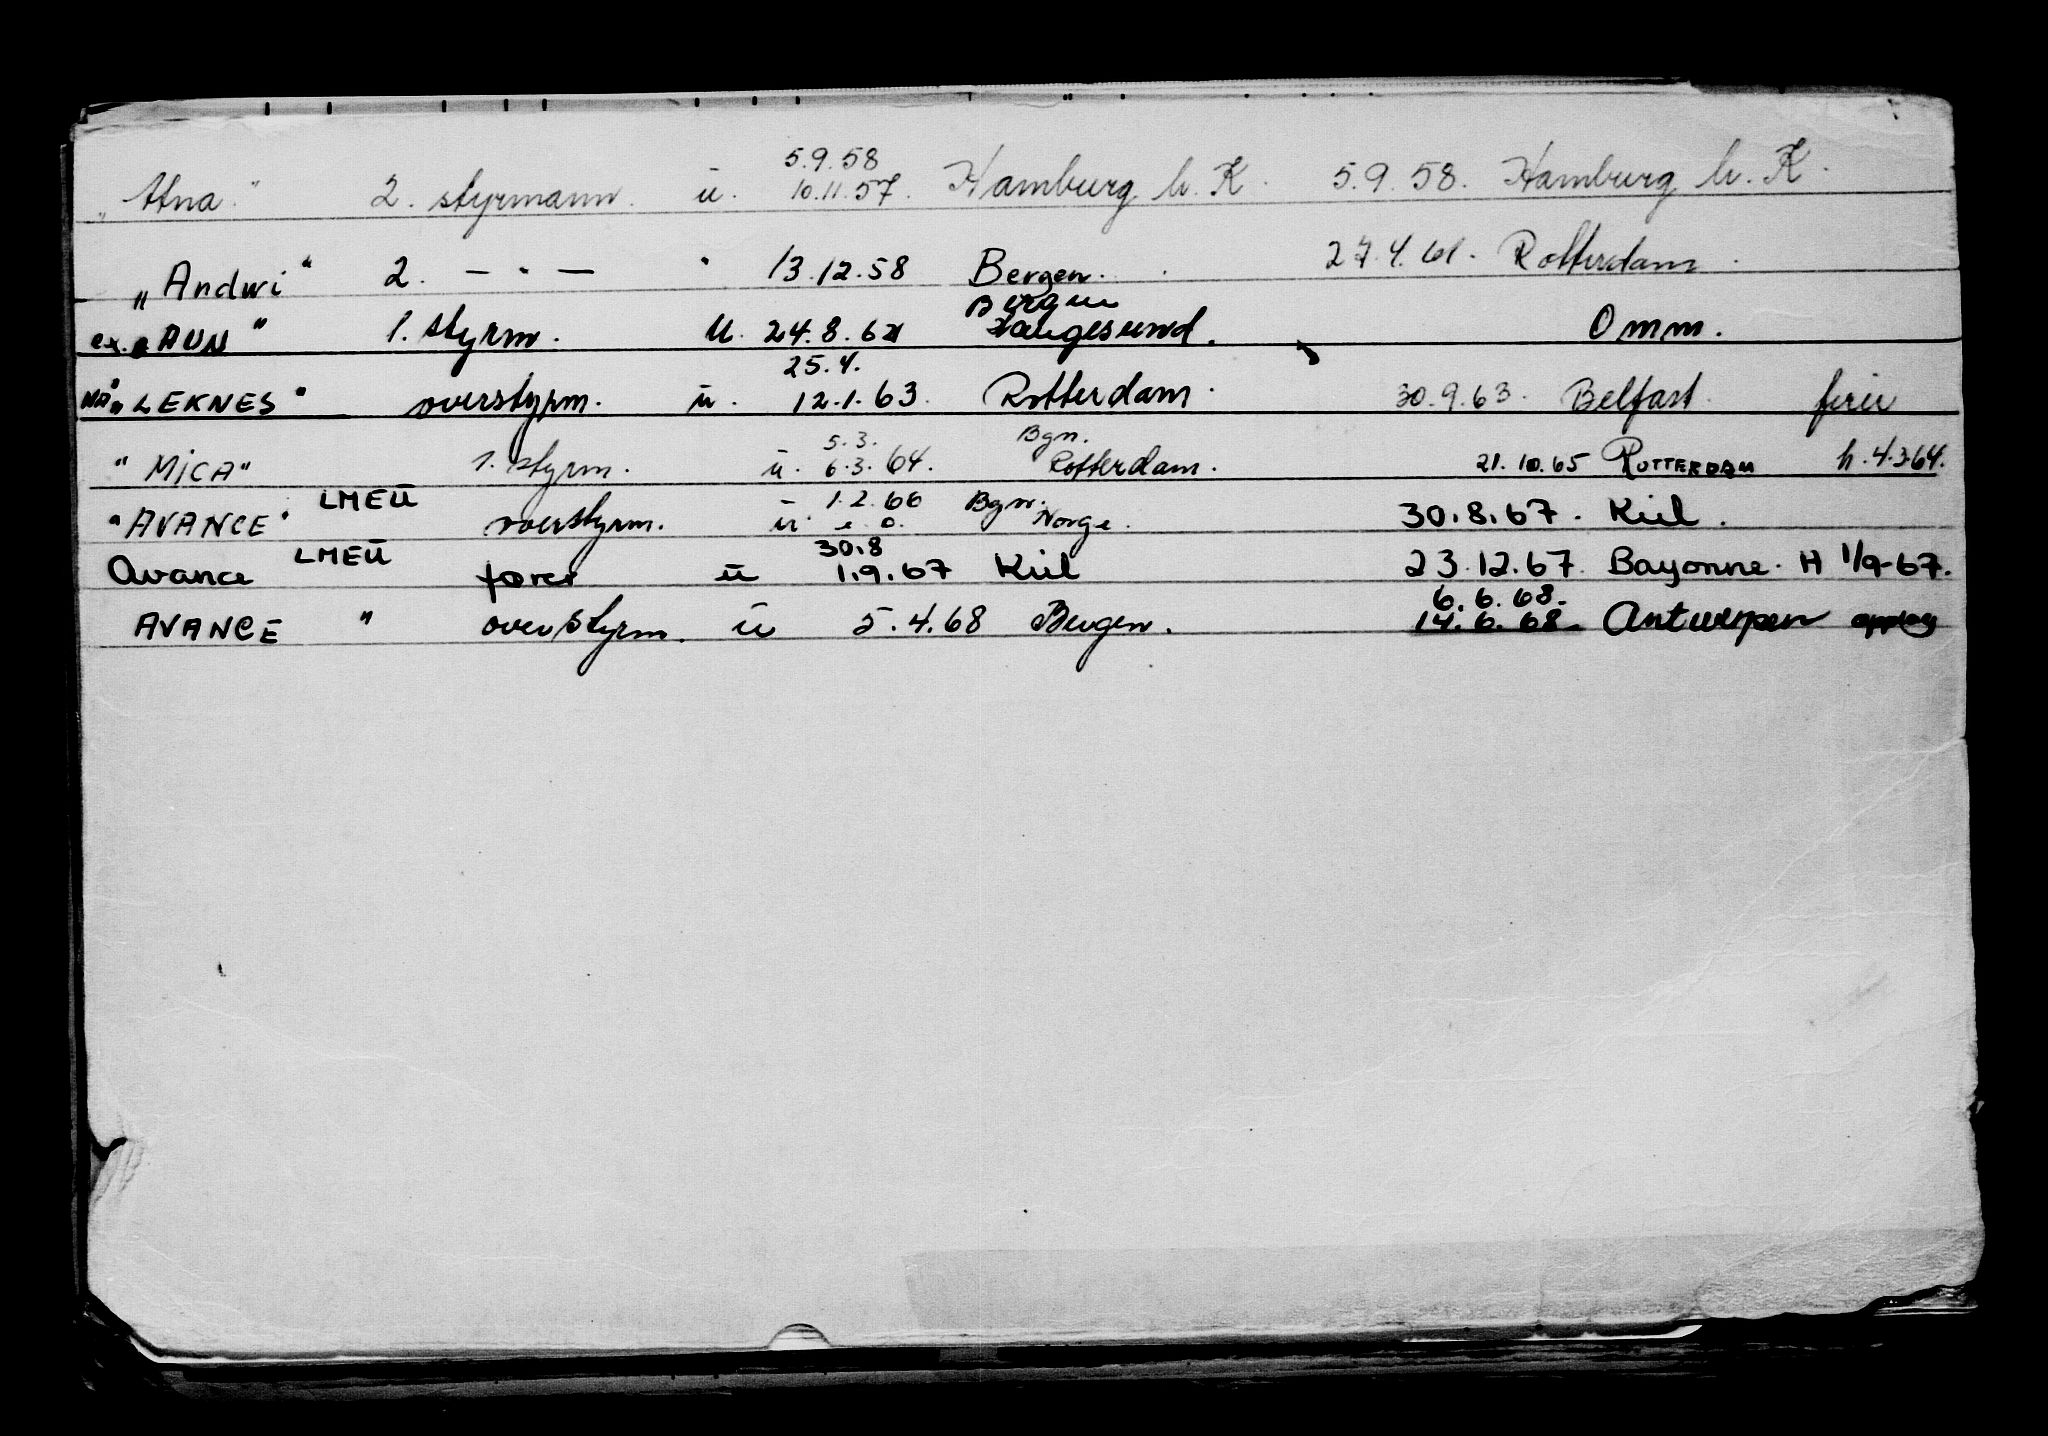 5.9.58
„Utna" 2. styrmann. u. 10.11.57. Hamburg h. K. 5.9.58. Hamburg h. K.
„Andwi" 2. — " — " 13.12.58 Bergen. 27.4.61. Rotterdam.
Bergen
ex. "AUN" 1. styrm. U. 24.8.61 Haugesund. Omm.
25.4.
nå „LEKNES" overstyrm. u. 12.1.63. Rotterdam. 30.9.63. Belfast. ferie
5.3. Bgn.
"MICA" 1. styrm. u. 6.3.64. Rotterdam. 21.10.65 ROTTERDAM h.4.3.64.
LMEU 1.2.66 Bgn.
"AVANCE" overstyrm. u. e. o. Norge. 30.8.67. Kiel.
LMEU 30.8
Avance fører u 1.9.67 Kiel 23.12.67. Bayonne. H 1/9-67.
6.6.68.
AVANCE " overstyrm. u 5.4.68 Bergen. 14.6.68. Antwerpen opplag